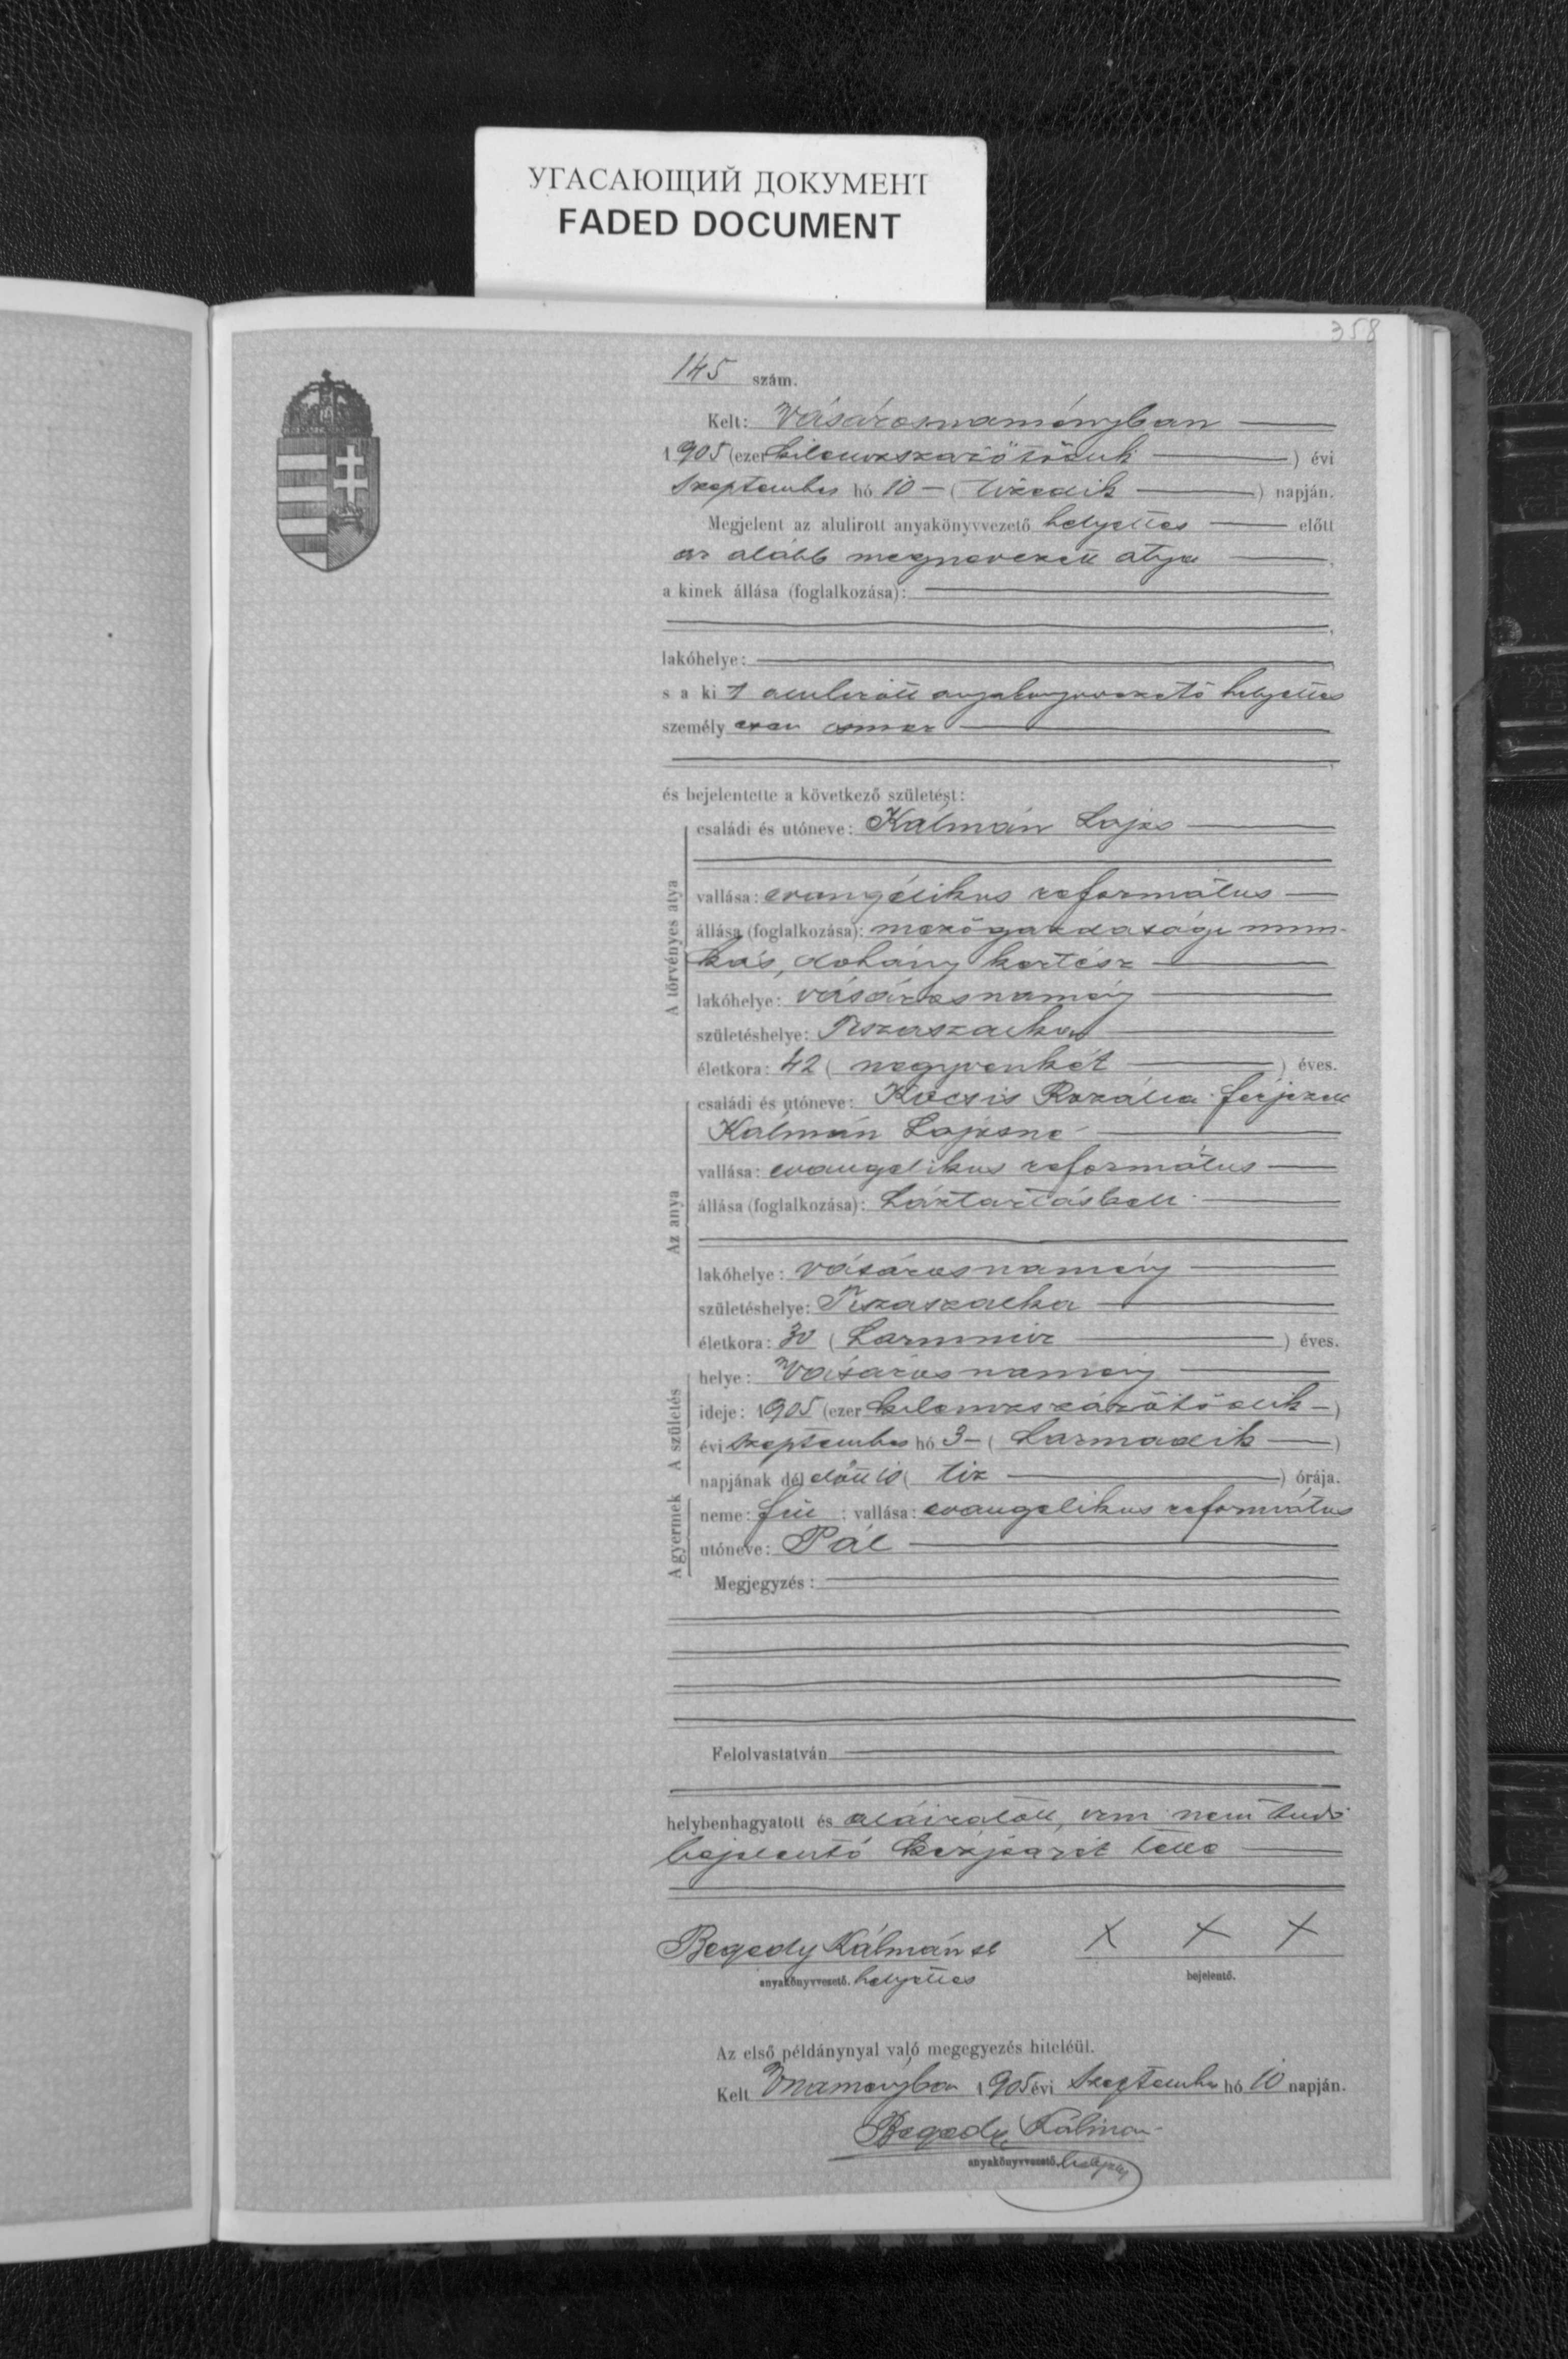 УГАСАЮЩИЙ ДОКУМЕНТ
FADED DOCUMENT
358
145 szám.
Kelt: Vásárosnaményban
1905 (ezer kilenczszázötödik) évi
Szeptember hó 10 (tizedik) napján.
Megjelent az alulirott anyakönyvvezető helyettes előtt
az alább megnevezett atya,
a kinek állása (foglalkozása):
lakóhelye:
s a ki t alulirott anyakönyvvezető helyettes
személyesen ismer
és bejelentette a következő születést:
A törvényes atya
családi és utóneve: Kálmán Lajos
vallása: evangélikus református
állása (foglalkozása): mezőgazdasági mun-
kás, dohány kertész
lakóhelye: vásárosnamény
születéshelye: Tiszaszalka
életkora: 42 (negyvenkét) éves.
Az anya
családi és utóneve: Kocsis Rozália férjezett
Kálmán Lajosné
vallása: evangelikus református
állása (foglalkozása): háztartásbeli
lakóhelye: vásárosnamény
születéshelye: Tiszaszalka
életkora: 30 (harmincz) éves.
A születés
helye: Vásárosnamény
ideje: 1905 (ezer kilenczszázötödik)
évi szeptember hó 3 (harmadik)
napjának délelőtt 10 (tiz) órája.
A gyermek
neme: fiu; vallása: evangelikus református
utóneve: Pál
Megjegyzés:
Felolvastatván
helybenhagyatott és aláiratott, irni nem tudó
bejelentő kézjegyét tette
Begedy Kálmán X X X
anyakönyvvezető. helyettes bejelentő.
Az első példánynyal való megegyezés hiteléül.
Kelt Vnaményban 1905 évi Szeptember hó 10 napján.
Begedy Kálmán
anyakönyvvezető. helyettes